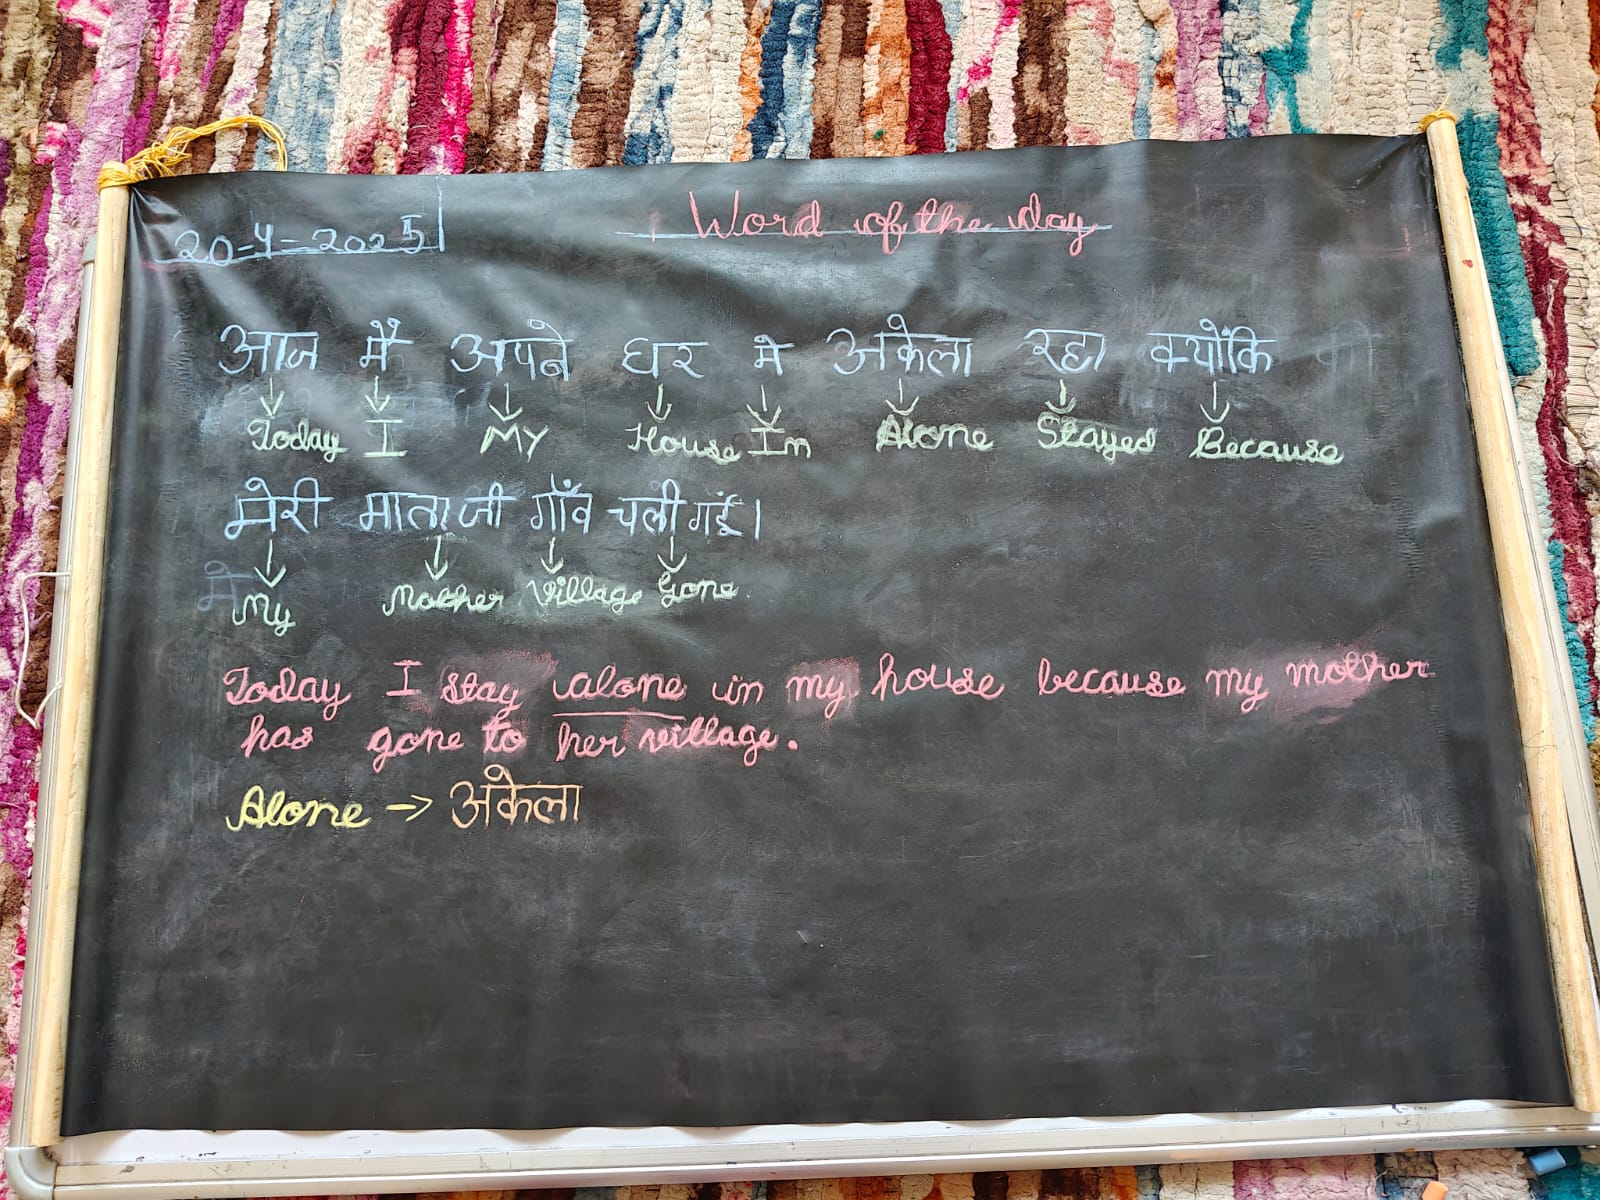 20-4-2025
Word of the day
आज मै अपने घर मे अकेला रहा क्योंकि
Today I My House In Alone Stayed Because
मेरी माता जी गाँव चली गई।
My Mother Village Gone
Today I stay alone in my house because my mother
has gone to her village.
Alone → अकेला